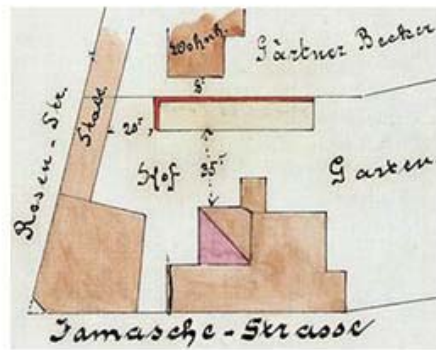 Wohnh.
Gärtner Becker
8'
Stall
20'
Rosen-Str.
Hof
35'
Garten
Jamasche-Strasse